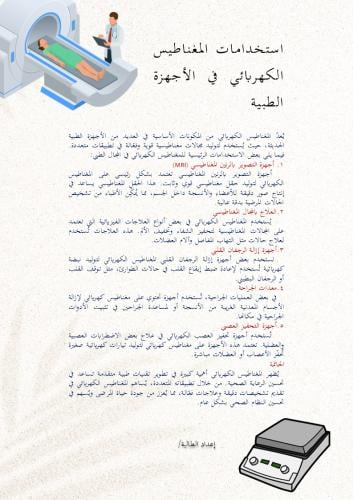 استخدامات المغناطيس
الكهربائي في الأجهزة
الطبية
يُعدّ المغناطيس الكهربائي من المكونات الأساسية في العديد من الأجهزة الطبية
الحديثة، حيث يُستخدم لتوليد مجالات مغناطيسية قوية وفعّالة في تطبيقات متعددة.
فيما يلي بعض الاستخدامات الرئيسية للمغناطيس الكهربائي في المجال الطبي:
١. أجهزة التصوير بالرنين المغناطيسي (MRI)
أجهزة التصوير بالرنين المغناطيسي تعتمد بشكل رئيسي على المغناطيس
الكهربائي لتوليد حقل مغناطيسي قوي وثابت. هذا الحقل المغناطيسي يساعد في
إنتاج صور دقيقة للأعضاء والأنسجة داخل الجسم، مما يمكّن الأطباء من تشخيص
الحالات المرضية بدقة عالية.
٢. العلاج بالمجال المغناطيسي
يُستخدم المغناطيس الكهربائي في بعض أنواع العلاجات الفيزيائية التي تعتمد
على المجالات المغناطيسية لتحفيز الشفاء وتخفيف الألم. هذه العلاجات تُستخدم
لعلاج حالات مثل التهاب المفاصل وآلام العضلات.
٣. أجهزة إزالة الرجفان القلبي
تستخدم بعض أجهزة إزالة الرجفان القلبي المغناطيس الكهربائي لتوليد نبضة
كهربائية تُستخدم لإعادة ضبط إيقاع القلب في حالات الطوارئ، مثل توقف القلب
أو الرجفان البطيني.
٤. معدات الجراحة
في بعض العمليات الجراحية، تُستخدم أجهزة تحتوي على مغناطيس كهربائي لإزالة
الأجسام المعدنية الغريبة من الأنسجة أو لمساعدة الجراحين في تثبيت الأدوات
الجراحية في مكانها.
٥. أجهزة التحفيز العصبي
تُستخدم أجهزة تحفيز العصب الكهربائي في علاج بعض الاضطرابات العصبية
والعضلية. تعتمد هذه الأجهزة على مغناطيس كهربائي لتوليد تيارات كهربائية صغيرة
تحفّز الأعصاب أو العضلات مباشرة.
الخاتمة
يُظهر المغناطيس الكهربائي أهمية كبيرة في تطوير تقنيات طبية متقدمة تساعد في
تحسين الرعاية الصحية. من خلال تطبيقاته المتعددة، يُساهم المغناطيس الكهربائي في
تقديم تشخيصات دقيقة وعلاجات فعّالة، مما يُعزز من جودة حياة المرضى ويُسهم في
تحسين النظام الصحي بشكل عام.
إعداد الطالبة/